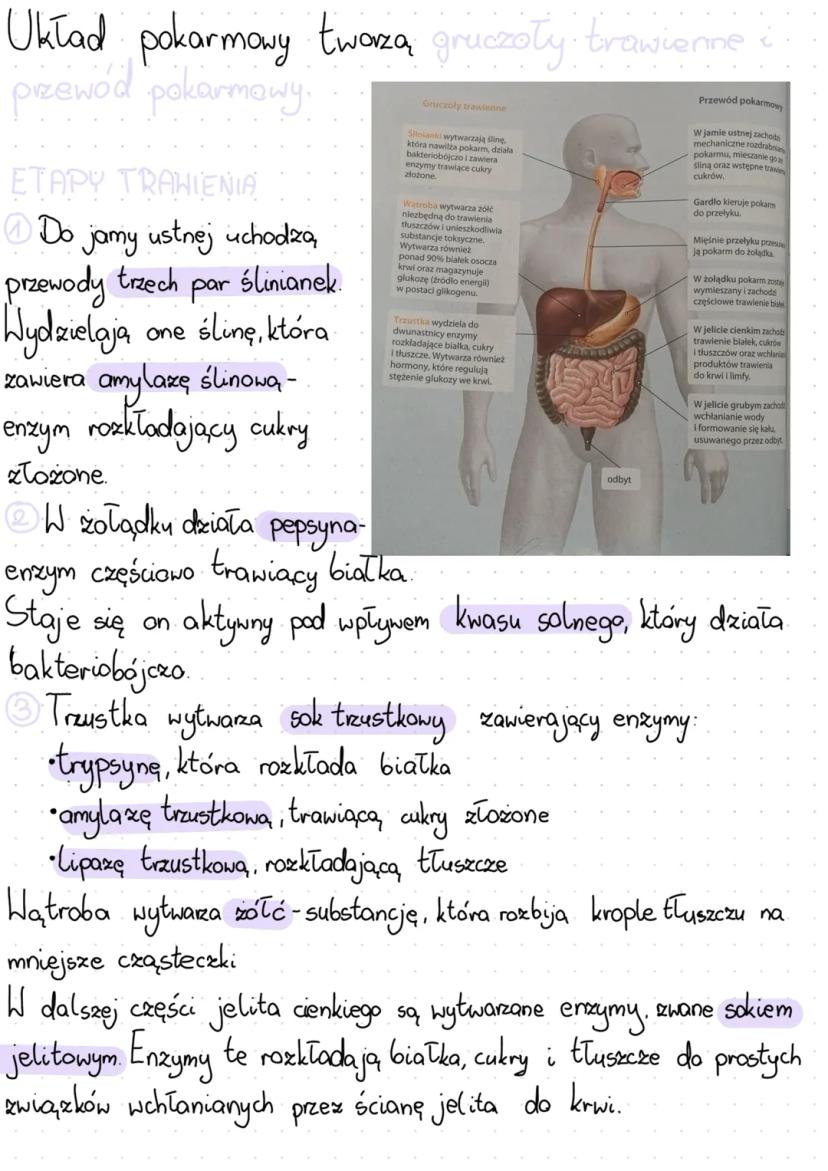 Układ pokarmowy tworzą gruczoły trawienne i
przewód pokarmowy.
Gruczoły trawienne
Przewód pokarmowy
Ślinianki wytwarzają ślinę,
która nawilża pokarm, działa
bakteriobójczo i zawiera
enzymy trawiące cukry
złożone.
Wątroba wytwarza żółć
niezbędną do trawienia
tłuszczów i unieszkodliwia
substancje toksyczne.
Wytwarza również
ponad 90% białek osocza
krwi oraz magazynuje
glukozę (źródło energii)
w postaci glikogenu.
Trzustka wydziela do
dwunastnicy enzymy
rozkładające białka, cukry
i tłuszcze. Wytwarza również
hormony, które regulują
stężenie glukozy we krwi.
W jamie ustnej zachodzi
mechaniczne rozdrabnianie
pokarmu, mieszanie go ze
śliną oraz wstępne trawienie
cukrów.
Gardło kieruje pokarm
do przełyku.
Mięśnie przełyku przesuwa
ją pokarm do żołądka.
W żołądku pokarm zostaje
wymieszany i zachodzi
częściowe trawienie białek
W jelicie cienkim zachodzi
trawienie białek, cukrów
i tłuszczów oraz wchłanianie
produktów trawienia
do krwi i limfy.
W jelicie grubym zachodzi
wchłanianie wody
i formowanie się kału,
usuwanego przez odbyt.
odbyt
ETAPY TRAWIENIA
① Do jamy ustnej uchodzą
przewody trzech par ślinianek.
Wydzielają one ślinę, która
zawiera amylazę ślinową -
enzym rozkładający cukry
złożone.
② W żołądku działa pepsyna-
enzym częściowo trawiący białka.
Staje się on aktywny pod wpływem kwasu solnego, który działa
bakteriobójczo.
③ Trzustka wytwarza sok trzustkowy zawierający enzymy:
•trypsynę, która rozkłada białka
•amylazę trzustkową, trawiącą cukry złożone
•lipazę trzustkową, rozkładającą tłuszcze
Wątroba wytwarza żółć-substancję, która rozbija krople tłuszczu na
mniejsze cząsteczki
W dalszej części jelita cienkiego są wytwarzane enzymy, zwane sokiem
jelitowym. Enzymy te rozkładają białka, cukry i tłuszcze do prostych
związków wchłanianych przez ścianę jelita do krwi.